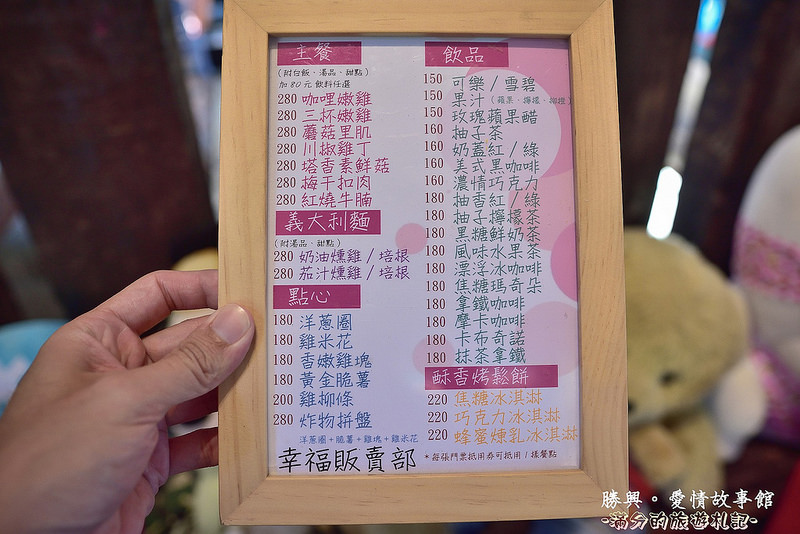 主餐
(附白飯、湯品、甜點)
加80元飲料任選
280 咖哩嫩雞
280 三杯嫩雞
280 蘑菇里肌
280 川椒雞丁
280 塔香素鮮菇
280 梅干扣肉
280 紅燒牛腩
義大利麵
(附湯品、甜點)
280 奶油燻雞/培根
280 茄汁燻雞/培根
點心
180 洋蔥圈
180 雞米花
180 香嫩雞塊
180 黃金脆薯
200 雞柳條
280 炸物拼盤
洋蔥圈+脆薯+雞塊+雞米花
幸福販賣部
飲品
150 可樂/雪碧
150 果汁(蘋果、檸檬、柳橙)
150 玫瑰蘋果醋
160 柚子茶
160 奶蓋紅/綠
160 美式黑咖啡
160 濃情巧克力
180 柚香紅/綠
180 柚子檸檬茶
180 黑糖鮮奶茶
180 風味水果茶
180 漂浮冰咖啡
180 焦糖瑪奇朵
180 拿鐵咖啡
180 摩卡咖啡
180 卡布奇諾
180 抹茶拿鐵
酥香烤鬆餅
220 焦糖冰淇淋
220 巧克力冰淇淋
220 蜂蜜煉乳冰淇淋
*每張門票抵用券可抵用1樣餐點
勝興。愛情故事館
-滿分的旅遊札記-